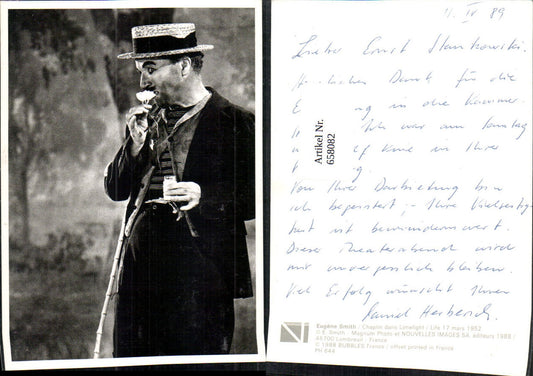 11. IV 89
Lieber Ernst Stankowski.
Herzlichen Dank für die
in die Kammer-
Ich war am Sonntag
in Ihrer
Von Ihrer Darbietung bin
ich begeistert, Ihre Vielseitig-
keit ist bewundernswert.
Dieser Theaterabend wird
mir unvergesslich bleiben.
Viel Erfolg wünscht Ihnen
Artikel Nr.
658082
Eugène Smith : Chaplin dans Limelight / Life 17 mars 1952
© E. Smith - Magnum Photo et NOUVELLES IMAGES SA éditeurs 1988 /
45700 Lombreuil - France
© 1988 BUBBLES Torons / offset printed in France
PH 644